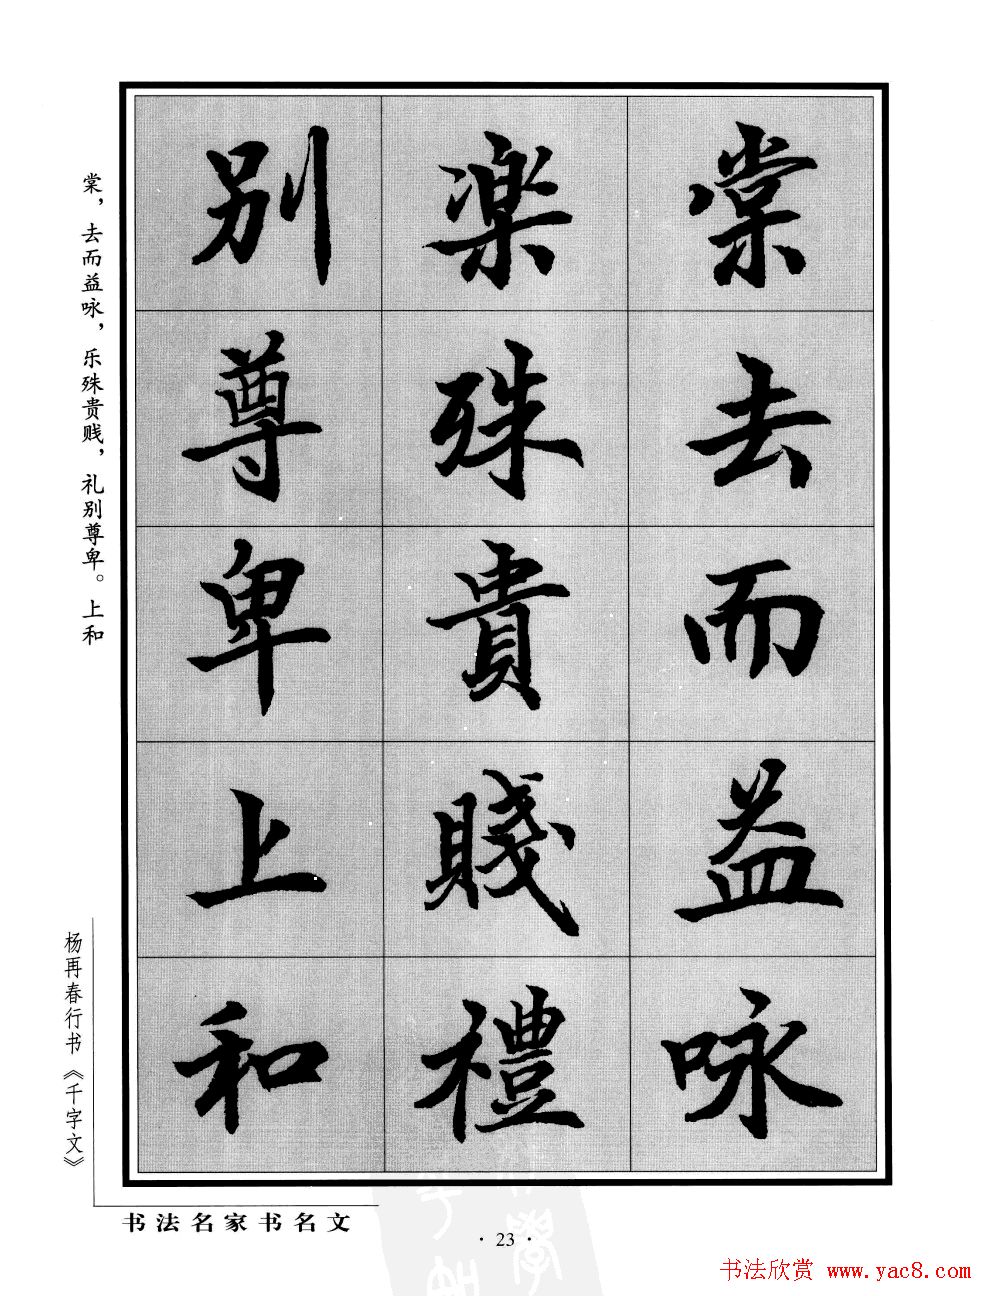 棠去而益咏
楽殊貴賤禮
别尊卑上和
棠，去而益咏，乐殊贵贱，礼别尊卑。上和
杨再春行书《千字文》
书法名家书名文
· 23 ·
书法欣赏 www.yac8.com